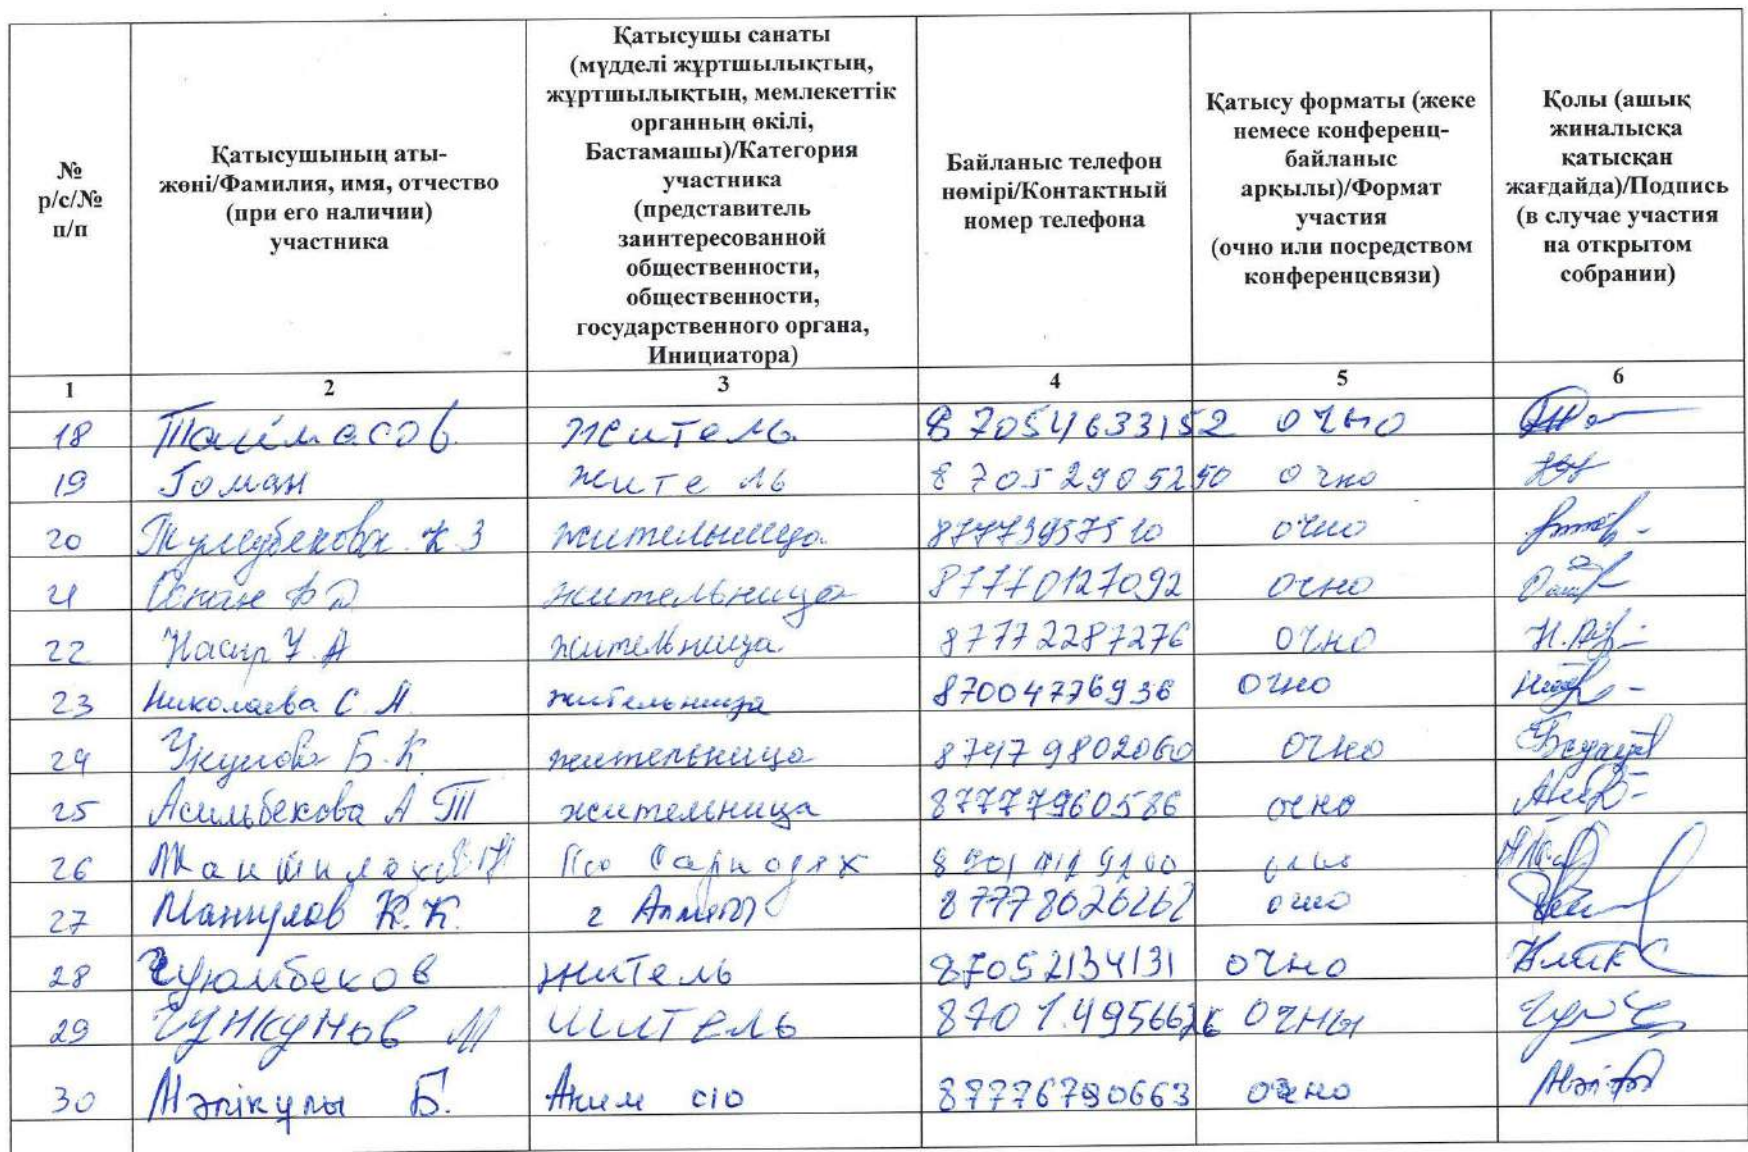 № р/с/№ п/п
Қатысушының аты-жөні/Фамилия, имя, отчество (при его наличии) участника
Қатысушы санаты (мүдделі жұртшылықтың, жұртшылықтың, мемлекеттік органның өкілі, Бастамашы)/Категория участника (представитель заинтересованной общественности, общественности, государственного органа, Инициатора)
Байланыс телефон нөмірі/Контактный номер телефона
Қатысу форматы (жеке немесе конференц-байланыс арқылы)/Формат участия (очно или посредством конференцсвязи)
Қолы (ашық жиналысқа қатысқан жағдайда)/Подпись (в случае участия на открытом собрании)
1 2 3 4 5 6
18 Таймасов житель 87054633152 очно
19 Гоман житель 87052905290 очно
20 К.З жительница 87773957510 очно
21 жительница 87770127092 очно
22 Насир У.А жительница 87772287276 очно
23 Николаева С.А. жительница 87004776936 очно
24 Б.К. жительница 87479802060 очно
25 Асильбекова А Т жительница 87777960586 очно
26 очно
27 К.К. г Алматы 87778026262 очно
28 житель 87052134131 очно
29 Чункунов М житель 8701 очны
30 Мәпікұлы Б. Аким с/о 87776790663 очно